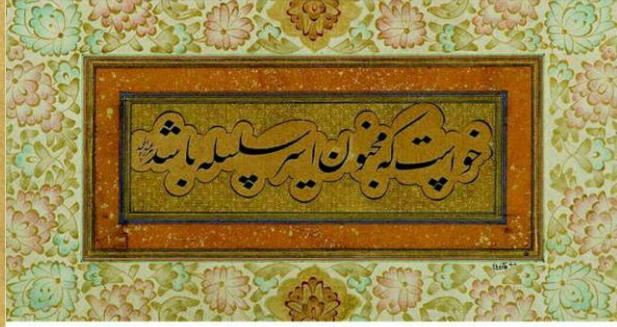 خواست که مجنون اسیر سلسله باشد